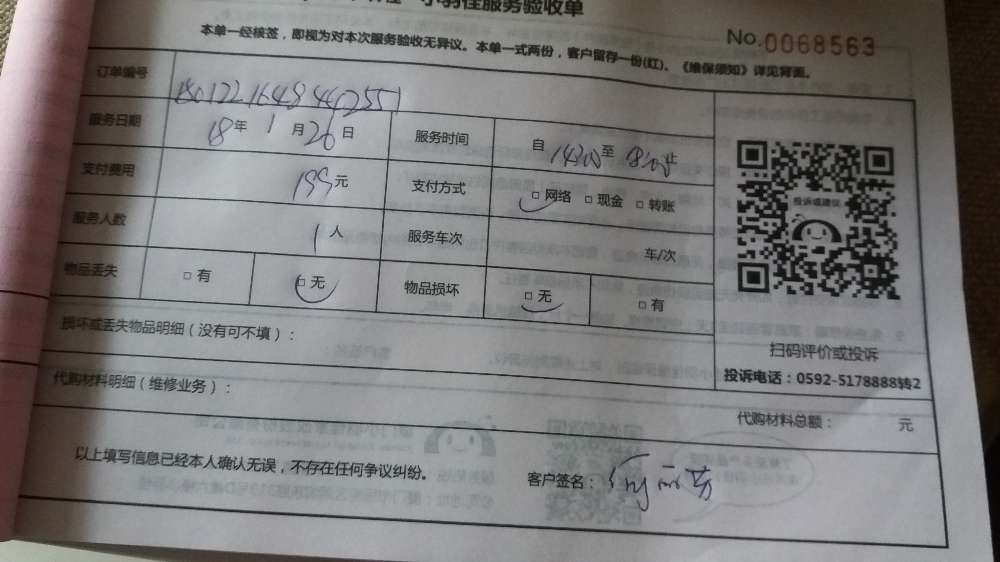 小羽佳服务验收单
No.0068563
本单一经核签，即视为对本次服务验收无异议。本单一式两份，客户留存一份(红)。《维保须知》详见背面。
订单编号
服务日期 18年1月26日 服务时间 自14:00至18:00止
支付费用 199元 支付方式 □网络 □现金 □转账
服务人数 1人 服务车次 车/次
物品丢失 □有 □无 物品损坏 □无 □有
损坏或丢失物品明细（没有可不填）：
代购材料明细（维修业务）：
投诉或建议
扫码评价或投诉
投诉电话：0592-5178888转2
代购材料总额： 元
以上填写信息已经本人确认无误，不存在任何争议纠纷。
客户签名：